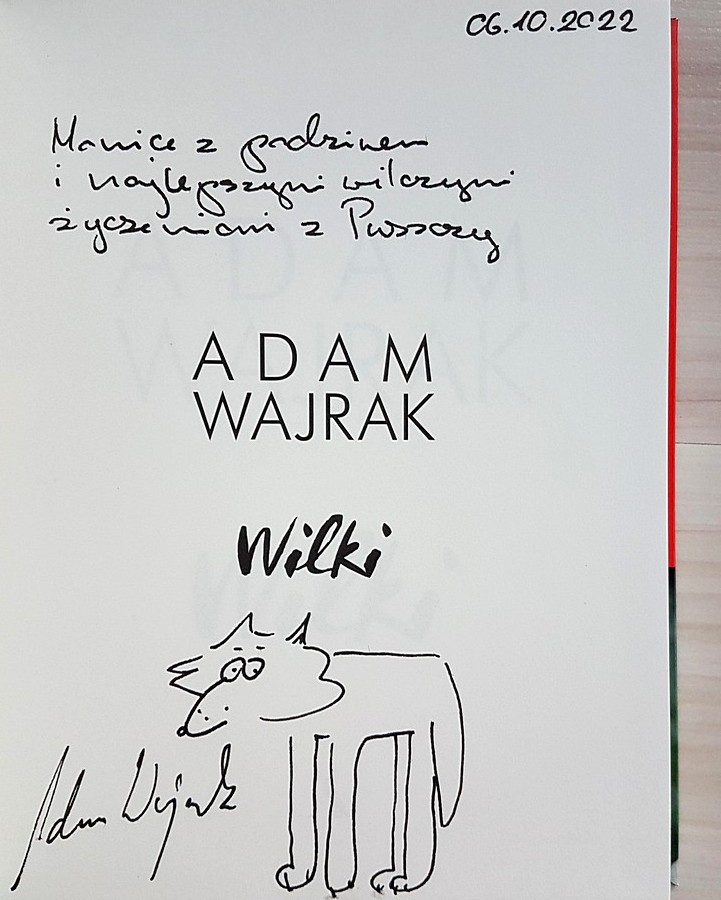 06.10.2022
Monice z podziwem
i najlepszymi wilczymi
życzeniami z Puszczy
ADAM
WAJRAK
Wilki
Adam Wajrak